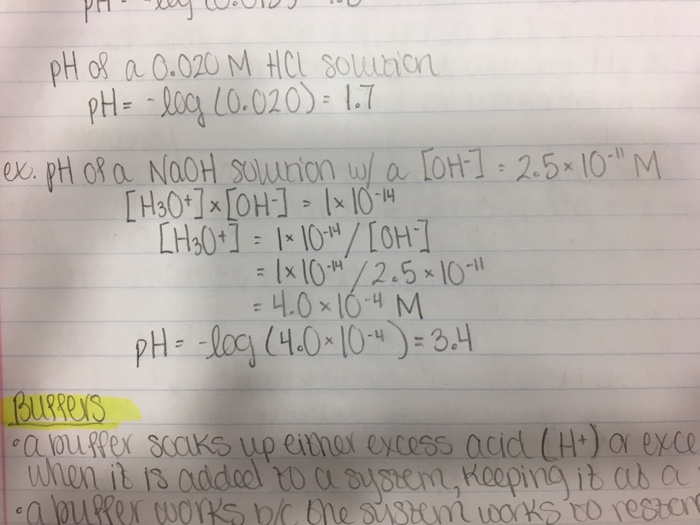 pH of a 0.020 M HCl solution
pH = -log (0.020) = 1.7
ex. pH of a NaOH solution w/ a [OH-] = 2.5 × 10⁻¹¹ M
[H₃O+] × [OH-] = 1 × 10⁻¹⁴
[H₃O+] = 1 × 10⁻¹⁴ / [OH-]
= 1 × 10⁻¹⁴ / 2.5 × 10⁻¹¹
= 4.0 × 10⁻⁴ M
pH = -log (4.0 × 10⁻⁴) = 3.4
Buffers
• a buffer soaks up either excess acid (H+) or exce
when it is added to a system, keeping it at a
• a buffer works b/c the system works to restor